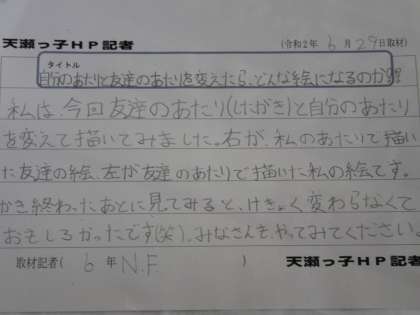 天瀬っ子HP記者
(令和2年 6月29日取材)
タイトル
自分のあたりと友達のあたりを変えたら、どんな絵になるのか!?
私は、今回友達のあたり(したがき)と自分のあたり
を変えて描いてみました。右が、私のあたりで描い
た友達の絵、左が友達のあたりで描いた私の絵です。
かき終わったあとに見てみると、けっきょく変わらなくて
おもしろかったです(笑)。みなさんも、やってみてください。
取材記者( 6 年 N.F )
天瀬っ子HP記者